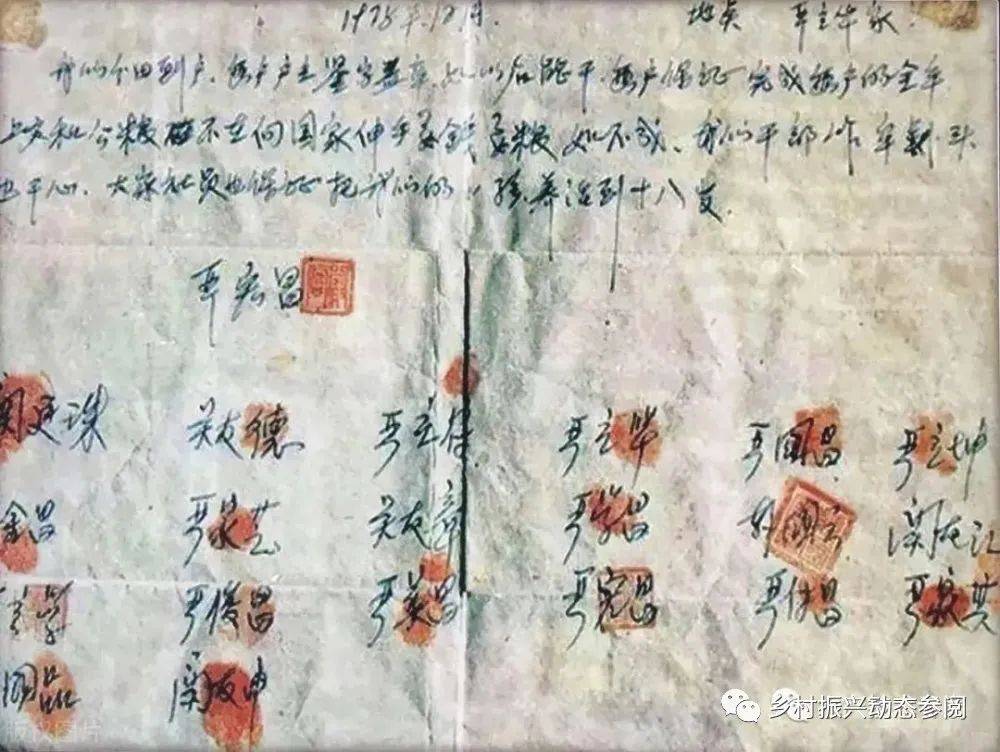 1978年12月. 地点 严立华家.
我们分田到户,每户户主签字盖章,如以后能干,每户保证完成每户的全年
上交和公粮 不在向国家伸手要钱要粮,如不成,我们干部作牢杀头
也干心,大家社员也保证把我们的小孩养活到十八岁.
严宏昌
关廷珠 关友德 严立符 严立华 严国昌 严立坤
金昌 严家芝 关友章 严学昌 韩国云 关友江
立学 严俊昌 严美昌 严宏昌 严付昌 严家其
国品 关友申
乡村振兴动态参阅